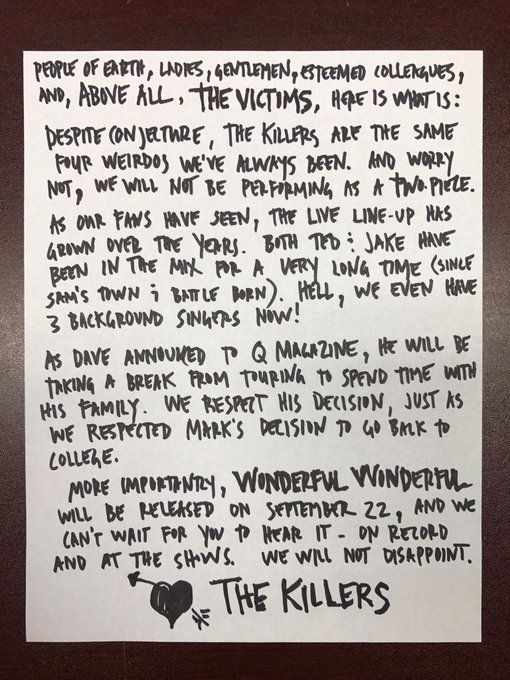 PEOPLE OF EARTH, LADIES, GENTLEMEN, ESTEEMED COLLEAGUES,
AND, ABOVE ALL, THE VICTIMS, HERE IS WHAT IS:
DESPITE CONJECTURE, THE KILLERS ARE THE SAME
FOUR WEIRDOS WE'VE ALWAYS BEEN. AND WORRY
NOT, WE WILL NOT BE PERFORMING AS A TWO PIECE.
AS OUR FANS HAVE SEEN, THE LIVE LINE-UP HAS
GROWN OVER THE YEARS. BOTH TED & JAKE HAVE
BEEN IN THE MIX FOR A VERY LONG TIME (SINCE
SAM'S TOWN & BATTLE BORN). HELL, WE EVEN HAVE
3 BACKGROUND SINGERS NOW!
AS DAVE ANNOUNCED TO Q MAGAZINE, HE WILL BE
TAKING A BREAK FROM TOURING TO SPEND TIME WITH
HIS FAMILY. WE RESPECT HIS DECISION, JUST AS
WE RESPECTED MARK'S DECISION TO GO BACK TO
COLLEGE.
MORE IMPORTANTLY, WONDERFUL WONDERFUL
WILL BE RELEASED ON SEPTEMBER 22, AND WE
CAN'T WAIT FOR YOU TO HEAR IT - ON RECORD
AND AT THE SHOWS. WE WILL NOT DISAPPOINT.
THE KILLERS